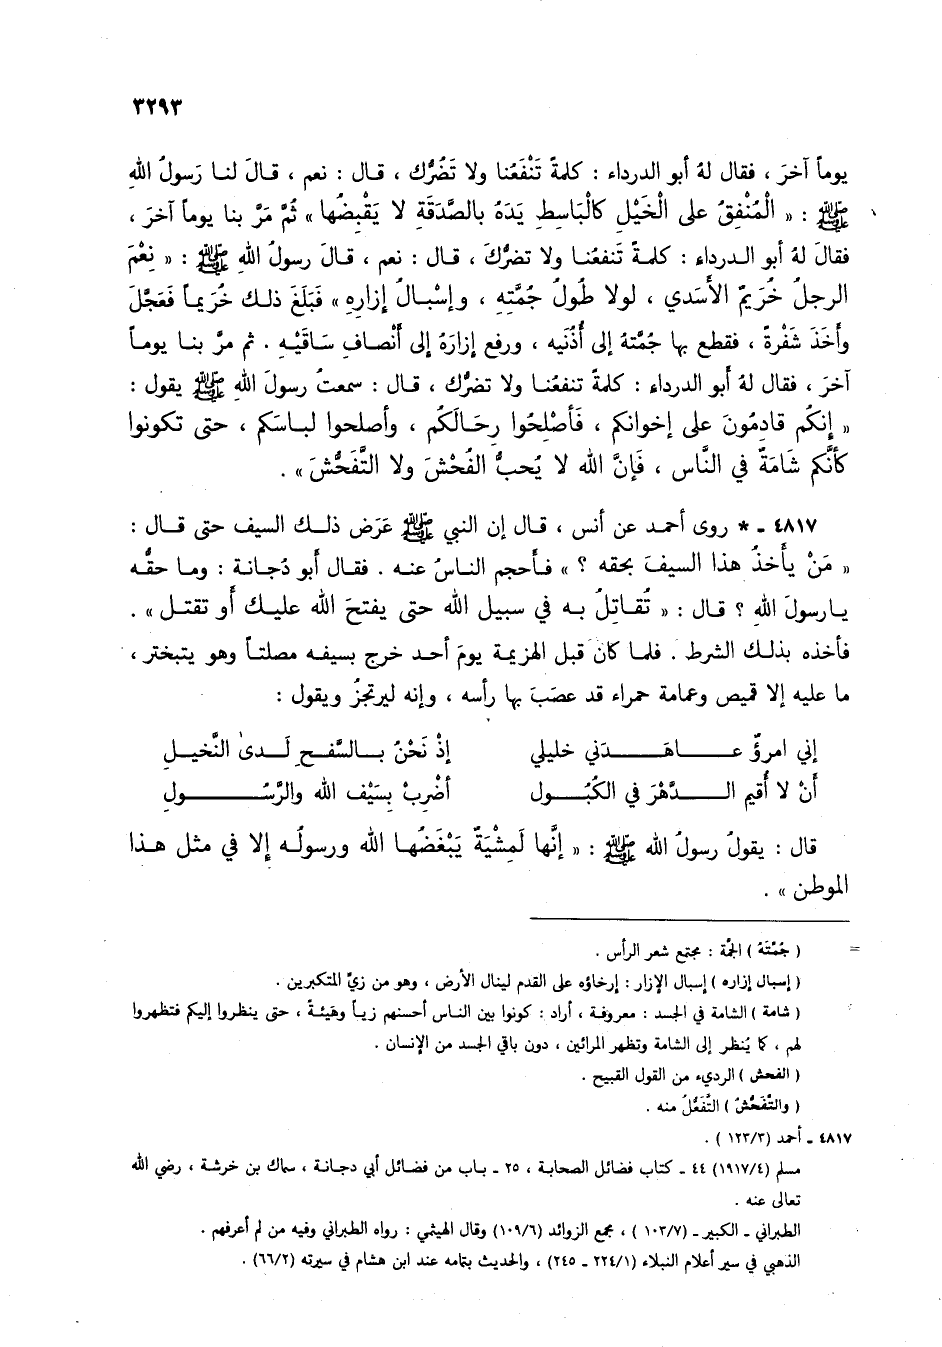 ٣٢٩٣
يوماً آخرَ ، فقال لهُ أبو الدرداء : كلمةً تَنْفَعُنا ولا تَضُرُّك ، قال : نعم ، قالَ لنا رَسولُ اللهِ
ﷺ : « الْمُنْفِقُ على الْخَيْلِ كالْبَاسِطِ يَدَهُ بالصَّدَقَةِ لا يَقْبِضُها » ثُمَّ مَرَّ بنا يوماً آخرَ ،
فقالَ لهُ أبو الدرداء : كلمةً تَنفعُنا ولا تضرُّكَ ، قال : نعم ، قال رسولُ اللهِ ﷺ : « نِعْمَ
الرجلُ خُرَيمٌ الأَسَدي ، لولا طُولُ جُمَّتِهِ ، وإسْبالُ إزارِهِ » فَبَلَغَ ذلك خُرَيماً فَعَجَّلَ
وأخَذَ شَفْرةً ، فقطع بها جُمَّتهُ إلى أُذُنَيه ، ورفع إزارَهُ إلى أنْصافِ سَاقَيْهِ . ثم مرَّ بنا يوماً
آخرَ ، فقال لهُ أبو الدرداء : كلمةً تنفعُنا ولا تضرُّك ، قال : سمعتُ رسولَ اللهِ ﷺ يقول :
« إنكُم قادِمُونَ على إخوانكم ، فَأصْلِحُوا رِحَالَكُم ، وأصلحوا لباسَكم ، حتى تكونوا
كأنَّكم شَامَةٌ في النَّاس ، فَإنَّ الله لا يُحبُّ الفُحْشَ ولا التَّفَحُّشَ » .
٤٨١٧ ـ * روى أحمد عن أنس ، قال إن النبي ﷺ عَرَض ذلك السيف حتى قال :
« مَنْ يأخذُ هذا السيفَ بحقه ؟ » فأحجم الناسُ عنه . فقال أبو دُجانة : وما حقُّه
يارسولَ اللهِ ؟ قال : « تُقاتِلُ به في سبيل الله حتى يفتحَ الله عليك أو تقتل » .
فأخذه بذلك الشرط . فلما كان قبل الهزيمة يومَ أحد خرج بسيفه مصلتاً وهو يتبختر ،
ما عليه إلا قميص وعمامة حمراء قد عصَبَ بها رأسه ، وإنه ليرتجزُ ويقول :
إني امرؤٌ عاهَدَني خليلي إذْ نَحْنُ بالسَّفح لَدى النَّخيلِ
أنْ لا أُقيم الدَّهْرَ في الكُبُول أضْرِبْ بِسَيْف الله والرَّسُول
قال : يقولُ رسولُ الله ﷺ : « إنَّها لَمِشْيَةٌ يَبْغَضُها الله ورسولُه إلا في مثل هذا
الموطن » .
= ( جُمَّتَهُ ) الجمَّة : مجتمع شعر الرأس .
( إسبال إزاره ) إسبال الإزار : إرخاؤه على القدم لينال الأرض ، وهو من زيِّ المتكبرين .
( شامة ) الشامة في الجسد : معروفة ، أراد : كونوا بين الناس أحسنهم زياً وهَيئةً ، حتى ينظروا إليكم فتظهروا
لهم ، كما يُنظر إلى الشامة وتظهر المرائين ، دون باقي الجسد من الإنسان .
( الفحش ) الرديء من القول القبيح .
( والتَّفَحُّشُ ) التَّفَعُّلُ منه .
٤٨١٧ ـ أحمد (١٢٣/٣ ) .
مسلم (١٩١٧/٤) ٤٤ ـ كتاب فضائل الصحابة ، ٢٥ ـ باب من فضائل أبي دجانة ، سماك بن خرشة ، رضي الله
تعالى عنه .
الطبراني ـ الكبير ـ (١٠٣/٧ ) ، مجمع الزوائد (١٠٩/٦) وقال الهيثمي : رواه الطبراني وفيه من لم أعرفهم .
الذهبي في سير أعلام النبلاء (٢٢٤/١ ـ ٢٤٥) ، والحديث بتمامه عند ابن هشام في سيرته (٦٦/٢) .